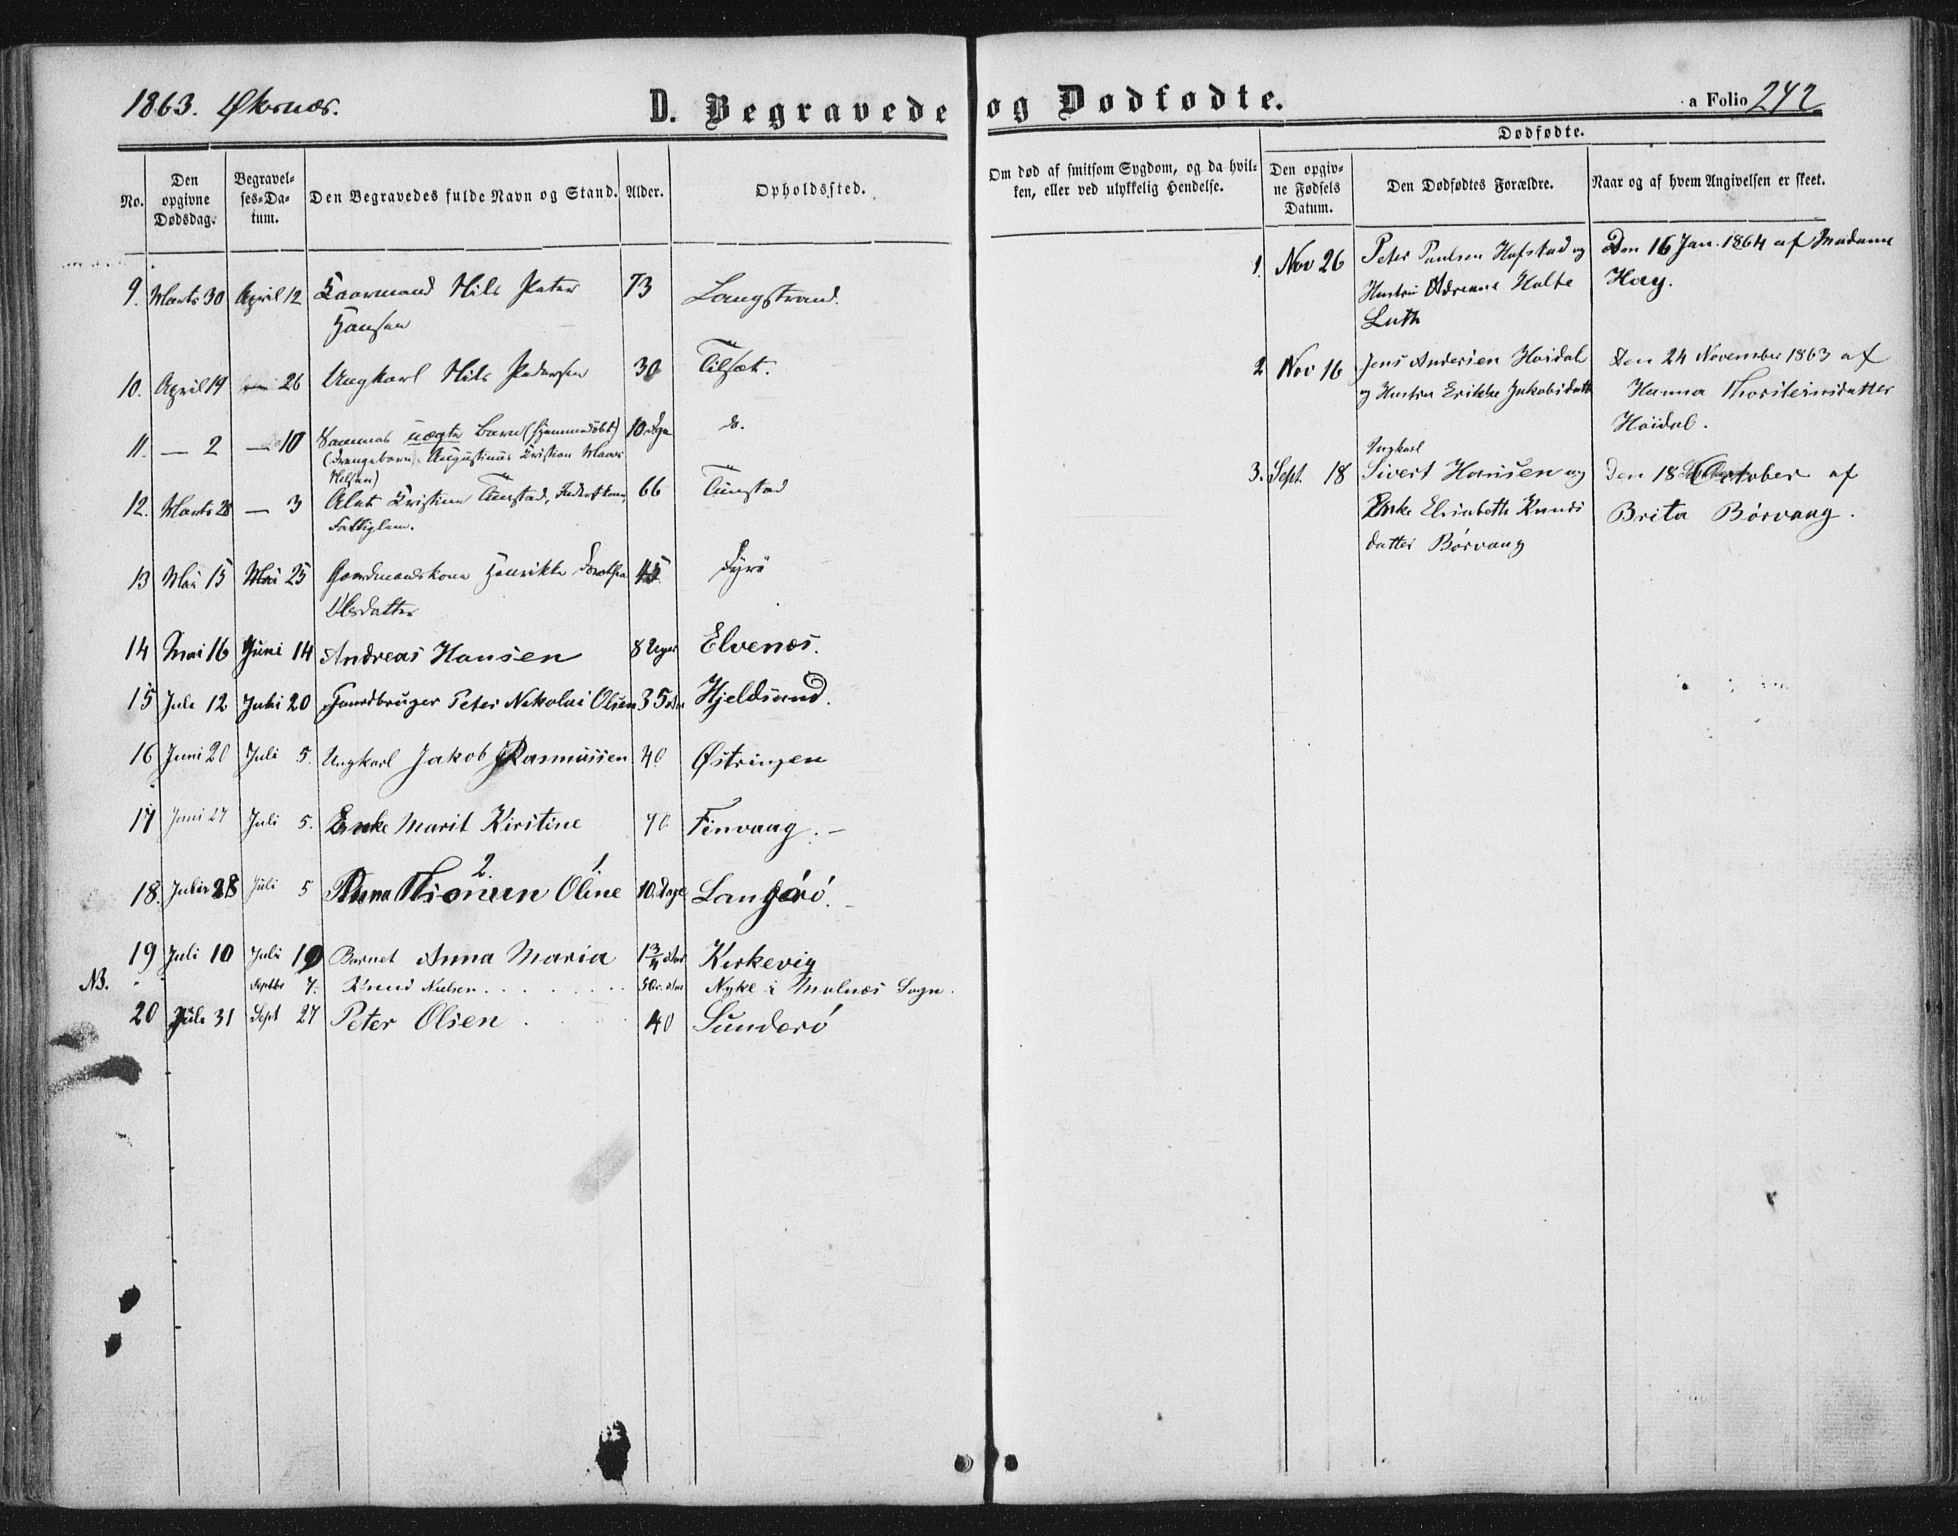 1863. Øksnæs.
D. Begravede og Dødfødte.
a Folio 242
Dødfødte.
No.
Den opgivne Dødsdag.
Begravelses-Datum.
Den Begravedes fulde Navn og Stand.
Alder.
Opholdssted.
Om død af smitsom Sygdom, og da hvilken, eller ved ulykkelig Hendelse.
Den opgivne Fødsels Datum.
Den Dødfødtes Forældre.
Naar og af hvem Angivelsen er skeet.
9. Marts 30 April 12 Kaarmand Nils Peter 73 Langstrand.
Hansen
10. April 19 26 Ungkarl Nils Pedersen 30 Tilset.
11. — 2 — 10 Sammes uægte Barn (hjemmedøbt) 10 Dge do.
(Drengebarn, Augustinus Kristian
Nilsen)
12. Marts 28 — 3 Kristine Tunstad, 66 Tunstad
Fattiglem.
13 Mai 15 Mai 25 Gaardmandskone Henrikke Dorothea 45 Dyrö
Olsdatter
14 Mai 16 Juni 14 Andreas Hansen 8 Uger Elvenæs.
15 Juli 12 Juli 20 Gaardbruger Peter Nikolai Olsen 35 Hjeldsand.
16 Juni 20 Juli 5. Ungkarl Jakob Rasmussen 40 Østringen
17 Juni 27 Juli 5. Enke Marit Kirstine 70 Finvaag. —
2. 1.
18. 28 Juli 5 Anna Thomine Oline 10. Dage
19 Juli 10 Juli 19 Barnet Anna Maria 1 3/4 Aar Kirkevig
NB. Septbr 7. Knud Nielsen . . . . . . Nyke i Malnæs Sogn.
20 Juli 31 Sept 27 Peter Olsen . . . . 40 Sunderö
1. Nov 26 Peter Paulsen Hafstad og Den 16 Jan. 1864 af Madame
Hustru Adreane Holte Hay.
Luth
2 Nov 16 Jens Andersen Høidal Den 24 November 1863 af
og Hustru Erikke Jakobsdatt Hanna Thorsteinsdatter
Høidal.
Ungkarl
3. Sept. 18 Sivert Hansen og Den 18 October af
Enke Elisabeth Knuds Brita Börvaag.
datter Börvaag